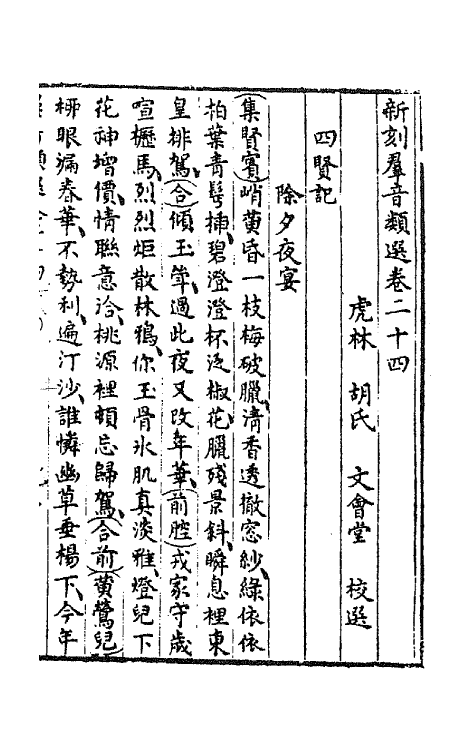 新刻羣音類選卷二十四
虎林 胡氏 文會堂 校選
四賢記
除夕夜宴
集賢賓峭黃昏一枝梅破臘、清香透徹窓紗、綠依依
柏葉青髩插、碧澄澄杯泛椒花、臘殘景斜、瞬息裡東
皇排駕、合傾玉斝、過此夜又改年華、前腔戎家守歲
喧櫪馬、烈烈炬散林鴉、你玉骨氷肌真淡雅、燈兒下
花神增價、情聯意洽、桃源裡頓忘歸駕、合前黃鶯兒
柳眼漏春華、不勢利、遍汀沙、誰憐幽草垂楊下、今年